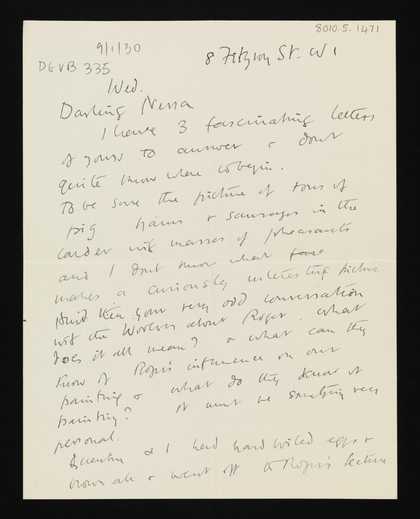 8010.5.1471
9/1/30
8 Fitzroy St. W1
DGVB 335
Wed.
Darling Nessa
I have 3 fascinating letters
of yours to answer & dont
quite know where to begin.
To be sure the picture of tons of
pig hams & sausages in the
larder with masses of pheasants
and I dont know what fame
makes a curiously interesting picture
your very odd conversation
with the Woolves about Roger. What
does it all mean? & what can they
know of Roger's influence on our
painting & what do they know of
painting? It must be something very
personal.
Quentin & I had hard boiled eggs &
brown ale & went off to Roger's lecture